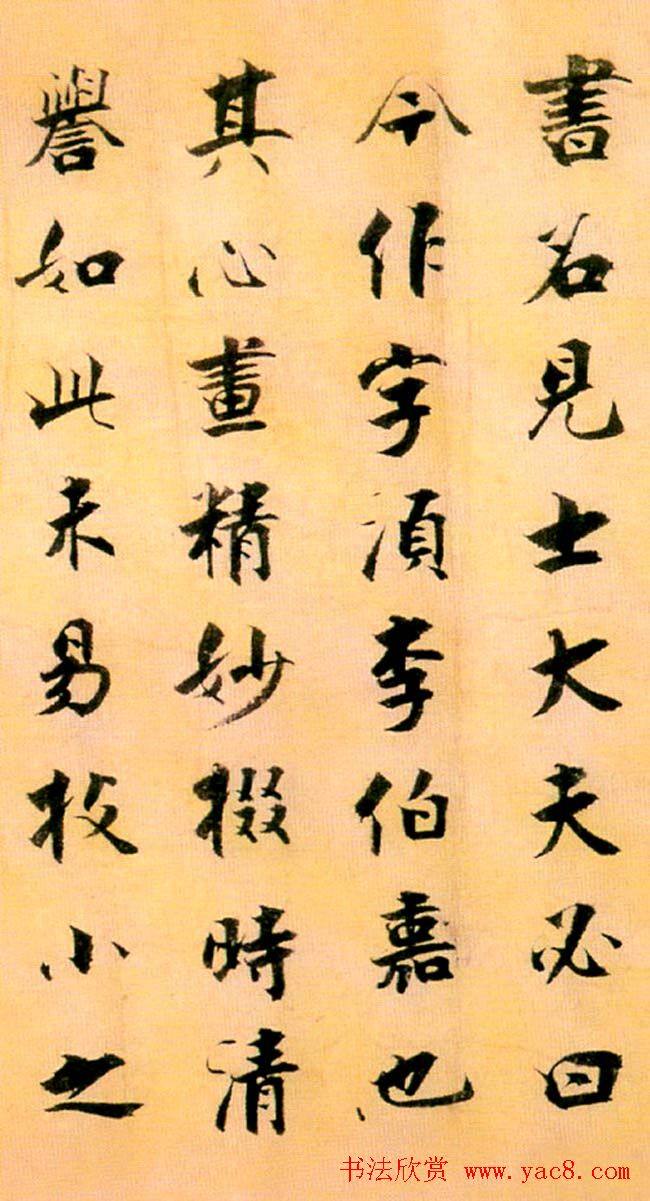 書名見士大夫必曰
今作字湏李伯嘉也
其心畫精妙掇時清
譽如此未易枚小之
书法欣赏 www.yac8.com